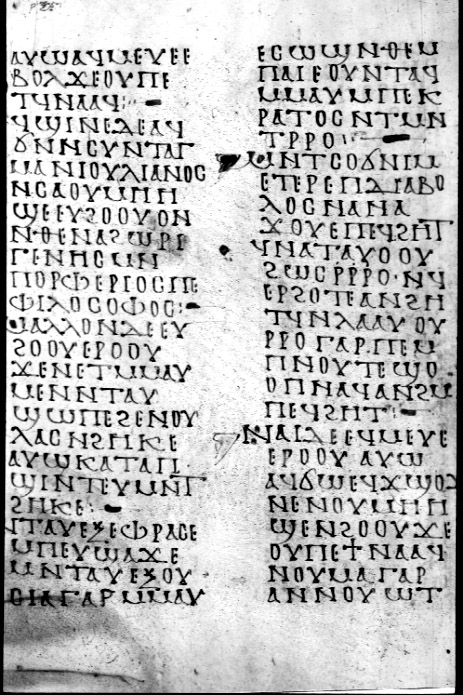 ⲁⲩⲱⲁϥⲙⲉⲩⲉⲉ
ⲃⲟⲗϫⲉⲟⲩⲡⲉ
ⲧϥⲛⲁⲁϥ:
ϥϣⲓⲛⲉⲇⲉⲁϥ
ϭⲛⲛⲥⲩⲛⲧⲁⲅ
ⲙⲁⲛⲓⲟⲩⲗⲓⲁⲛⲟⲥ
ⲛⲥⲁⲟⲩⲙⲏⲏ
ϣⲉⲉⲩϩⲟⲟⲩⲟⲛ
ⲛⲑⲉⲛⲁϩⲱⲣⲓ
ⲅⲉⲛⲏⲥⲙⲛ
ⲡⲟⲣⲫⲉⲣⲓⲟⲥⲡⲉ
ⲫⲓⲗⲟⲥⲟⲫⲟⲥ:
ⲙⲁⲗⲗⲟⲛⲇⲉⲉⲩ
ϩⲟⲟⲩⲉⲣⲟⲟⲩ
ϫⲉⲛⲉⲧⲙⲙⲁⲩ
ⲙⲉⲛⲛⲧⲁⲩ
ϣⲱⲡⲉϩⲉⲛⲟⲩ
ⲗⲁⲥⲛϩⲏⲕⲉ
ⲁⲩⲱⲕⲁⲧⲁⲡ
ϣⲓⲛⲧⲉⲩⲙⲛⲧ
ϩⲏⲕⲉ:
ⲛⲧⲁⲩⲉⲝⲉⲫⲣⲁⲥⲉ
ⲙⲡⲉⲩϣⲁϫⲉ
ⲙⲛⲧⲁⲩⲉⲝⲟⲩ
ⲥⲓⲁⲅⲁⲣⲙⲙⲁⲩ
ⲉⲥⲱϣⲛⲑⲉⲙ
ⲡⲁⲓⲉⲟⲩⲛⲧⲁϥ
ⲙⲙⲁⲩⲙⲡⲉⲕ
ⲣⲁⲧⲟⲥⲛⲧⲙⲛ
ⲧⲣⲣⲟ:
ⲙⲛⲧⲥⲟϭⲛⲓⲙ
ⲉⲧⲉⲣⲉⲡⲇⲓⲁⲃⲟ
ⲗⲟⲥⲛⲁⲛⲁ
ϫⲟⲩⲉⲡⲉϥϩⲏⲧ
ϥⲛⲁⲧⲁⲩⲟⲟⲩ
ϩⲱⲥⲣⲣⲣⲟ·ⲛϥ
ⲉⲣϩⲟⲧⲉⲁⲛϩⲏ
ⲧϥⲛⲗⲁⲁⲩⲟⲩ
ⲣⲣⲟⲅⲁⲣⲡⲉⲙ
ⲡⲛⲟⲩⲧⲉϣⲟ
ⲟⲡⲛⲁϥⲁⲛϩⲙ
ⲡⲉϥϩⲏⲧ:
ⲛⲁⲓⲇⲉⲉϥⲙⲉⲩⲉ
ⲉⲣⲟⲟⲩⲁⲩⲱ
ⲁϥϭⲱⲉϥϫⲱϩⲙ
ⲛⲉⲛⲟⲩⲙⲏⲏ
ϣⲉⲛϩⲟⲟⲩϫⲉ
ⲟⲩⲡⲉϯⲛⲁⲁϥ
ⲛⲟⲩⲙⲁⲅⲁⲣ
ⲁⲛⲛⲟⲩⲱⲧ